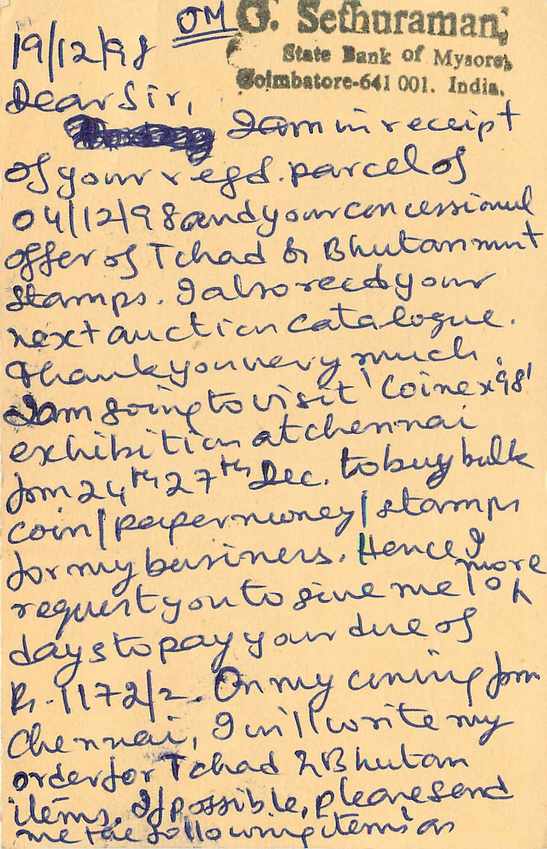 OM G. Sethuraman,
State Bank of Mysore,
Coimbatore-641 001. India.
19/12/98
Dear Sir,
I am in receipt
of your regd. parcel of
04/12/98 and your concessional
offer of Tchad & Bhutan mint
stamps. I also recd your
next auction catalogue.
Thank you very much.
I am going to visit 'Coinex 98'
exhibition at chennai
from 24th 27th Dec. to buy bulk
coin/paper money/stamps
for my business. Hence I
request you to give me 10 more
days to pay your due of
Rs. 1172/2. On my coming from
Chennai, I will write my
order for Tchad & Bhutan
items. If possible, please send
me the following items on